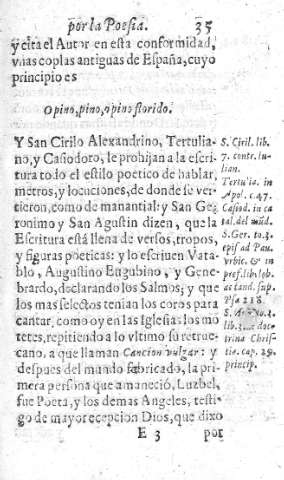 por la Poesia. 35
y cita el Autor en esta conformidad,
vnas coplas antiguas de España, cuyo
principio es
Opino, pino, opino florido.
Y San Cirilo Alexandrino, Tertulia-
no, y Casiodoro, le prohijan a la escri-
tura todo el estilo poetico de hablar,
metros, y locuciones, de donde se ver-
tieron, como de manantial: y San Ge-
ronimo y San Agustin dizen, que la
Escritura está llena de versos, tropos,
y figuras poeticas: y lo escriuen Vata-
blo, Augustino Eugubino, y Gene-
brardo, declarando los Salmos; y que
los mas selectos tenian los coros para
cantar, como oy en las Iglesias los mo
tetes, repitiendo a lo vltimo su retrue-
cano, a que llaman Cancion vulgar: y
despues del mundo fabricado, la pri-
mera persona que amaneció, Luzbel,
fue Poeta, y los demas Angeles, testi-
go de mayor recepcion Dios, que dixo
E 3 por
S. Ciril. lib.
7. contr. Iu-
lian.
Tertulia. in
Apol. c. 47.
Casiod. in ca
tal. del mũd.
S. Ger. to. 3.
epist. ad Pau.
vrbic. & in
pref. lib. Iob.
ac tand. sup.
Psa 218.
S. to. 3.
lib. 3. doc-
trina Chris-
tie. cap. 29.
princip.